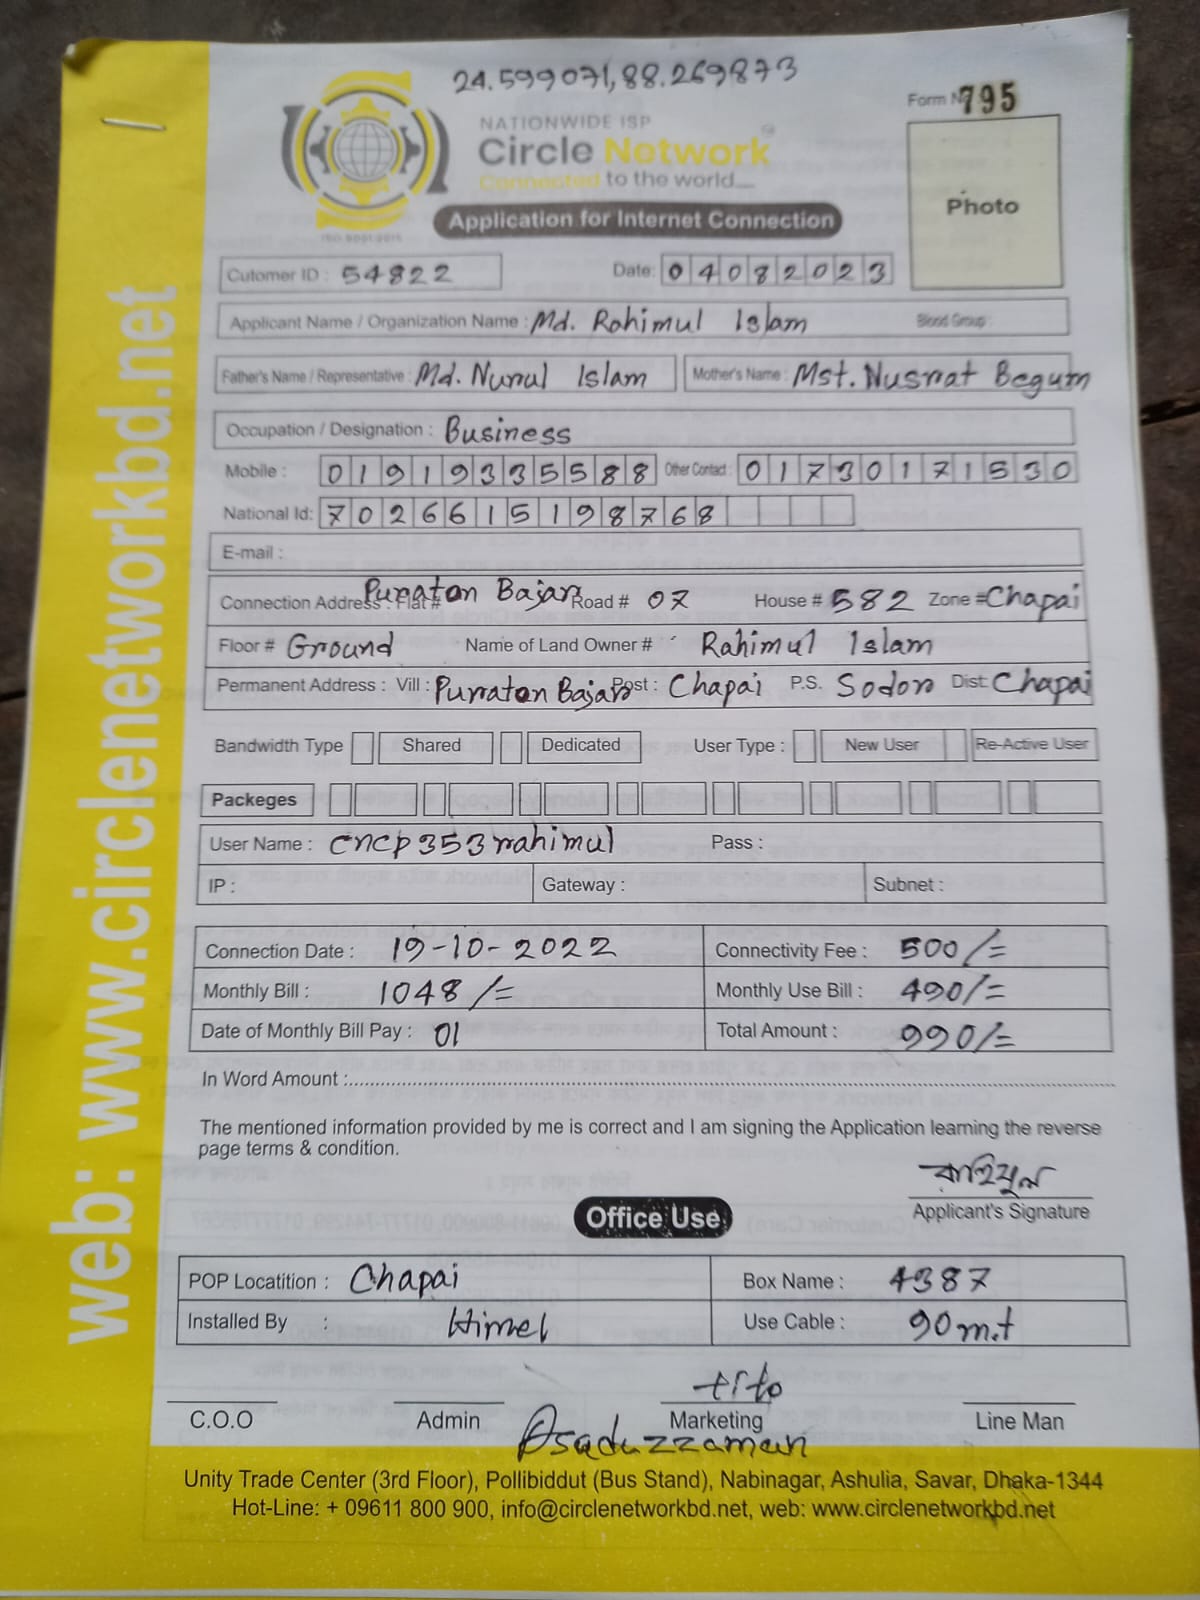 24.599071,88.269873
Form No 795
NATIONWIDE ISP
Circle Network
Connected to the world...
Photo
ISO 9001:2015
Application for Internet Connection
Cutomer ID : 54822 Date: 04082023
Applicant Name / Organization Name : Md. Rahimul Islam Blood Group :
Father's Name / Representative : Md. Nurul Islam Mother's Name : Mst. Nusrat Begum
Occupation / Designation : Business
Mobile : 01919335588 Other Contact : 01730171530
National Id: 7026615198768
E-mail :
Connection Address : Flat # Puraton Bajar Road # 07 House # 582 Zone # Chapai
Floor # Ground Name of Land Owner # Rahimul Islam
Permanent Address : Vill : Puraton Bajar Post : Chapai P.S. Sodor Dist: Chapai
Bandwidth Type Shared Dedicated User Type : New User Re-Active User
Packeges
User Name : cncp353rahimul Pass :
IP : Gateway : Subnet :
Connection Date : 19-10-2022 Connectivity Fee : 500/=
Monthly Bill : 1048/= Monthly Use Bill : 490/=
Date of Monthly Bill Pay : 01 Total Amount : 990/=
In Word Amount :
The mentioned information provided by me is correct and I am signing the Application learning the reverse
page terms & condition.
রাহিমুল
Applicant's Signature
Office Use
POP Locatition : Chapai Box Name : 4387
Installed By : Himel Use Cable : 90m.t
tito
C.O.O Admin Marketing Line Man
Asaduzzaman
Unity Trade Center (3rd Floor), Pollibiddut (Bus Stand), Nabinagar, Ashulia, Savar, Dhaka-1344
Hot-Line: + 09611 800 900, info@circlenetworkbd.net, web: www.circlenetworkbd.net
web: www.circlenetworkbd.net